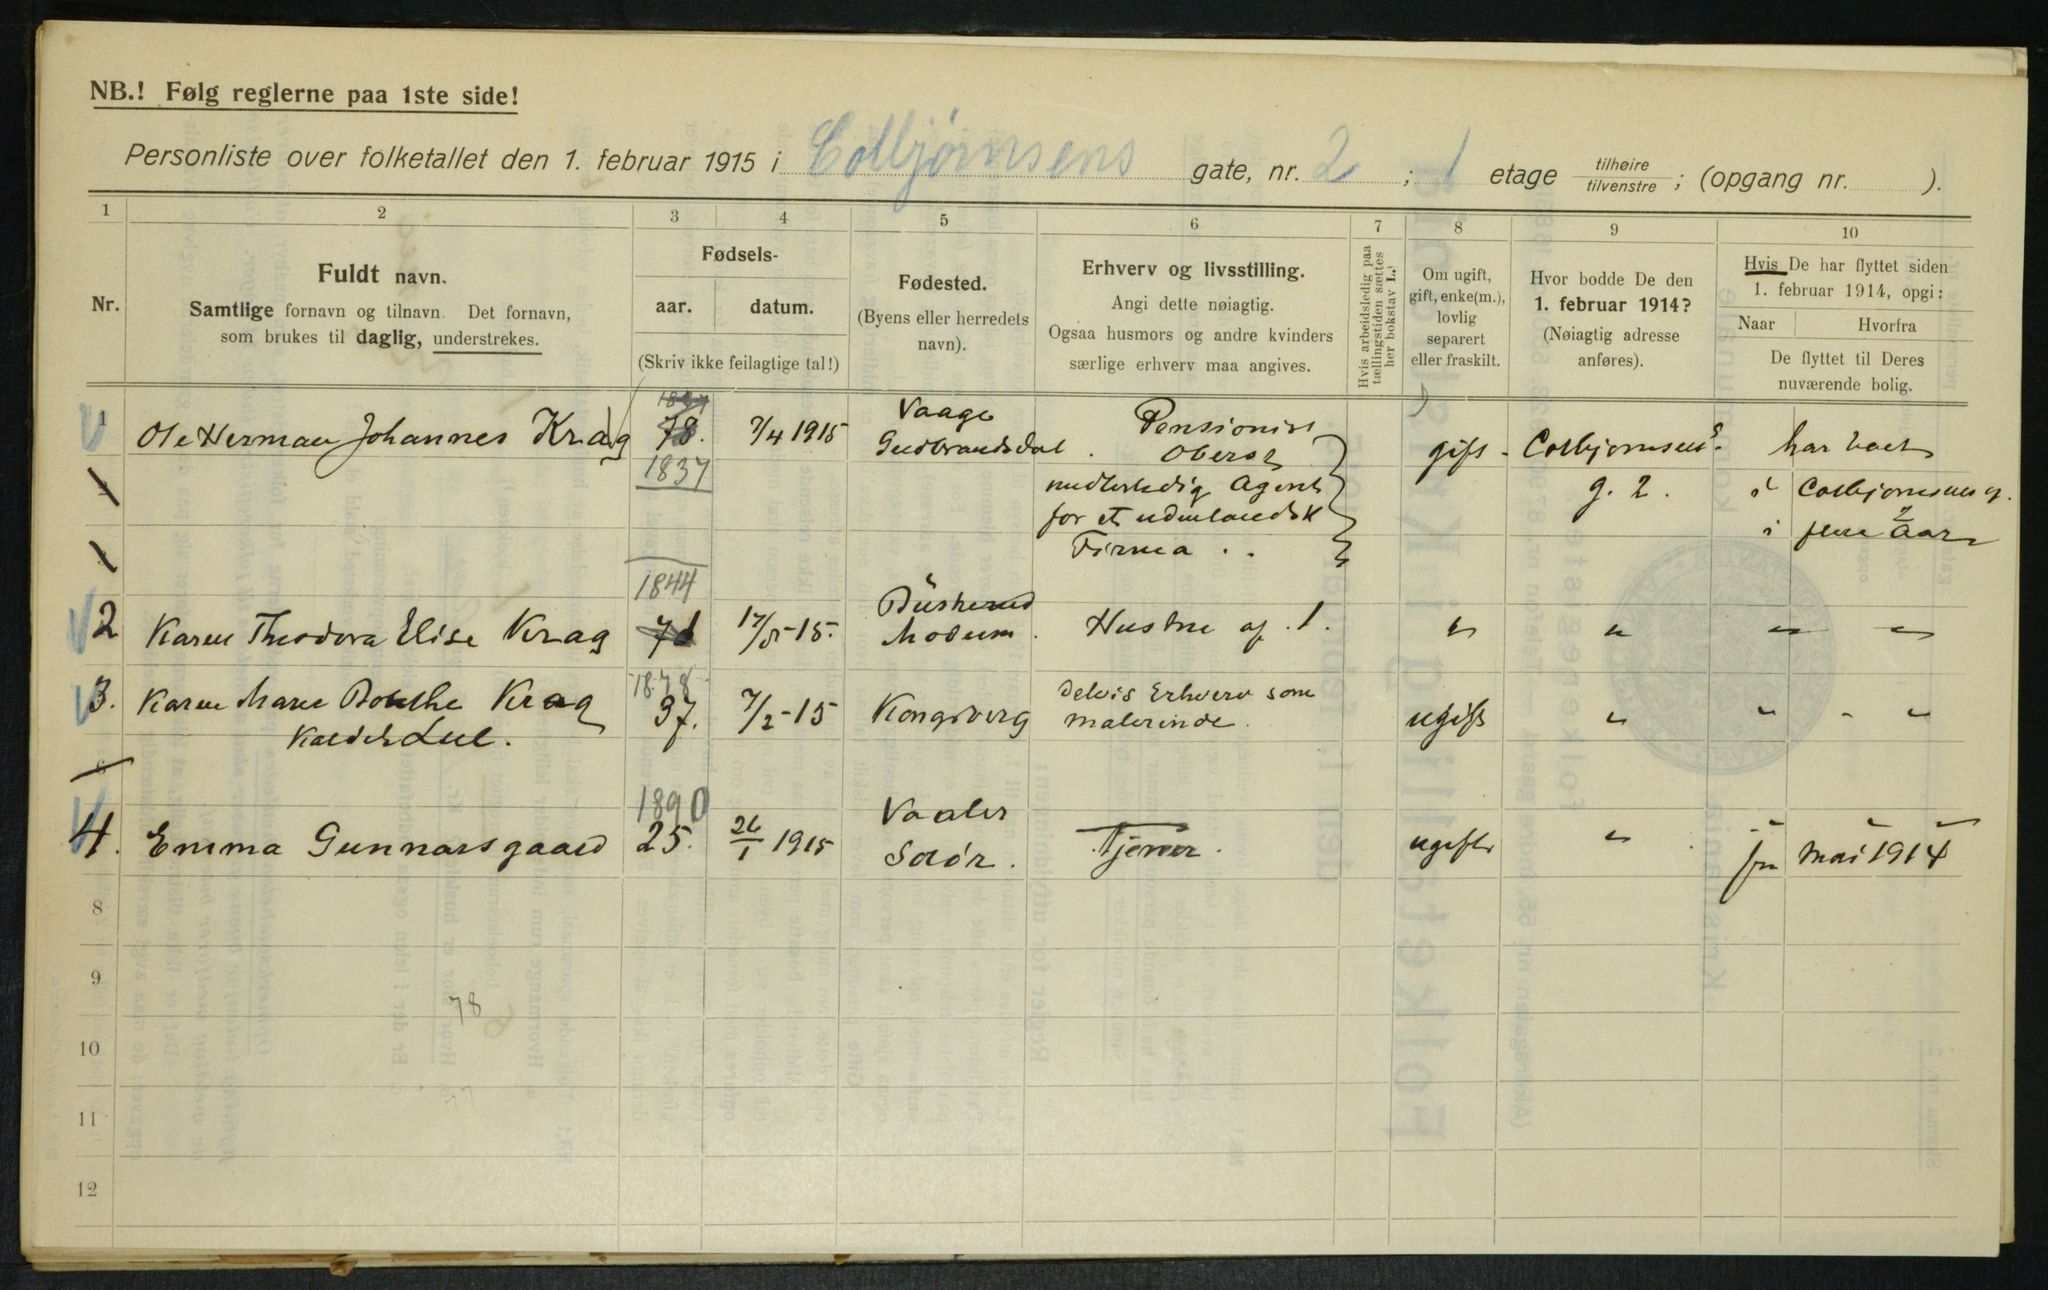 NB.! Følg reglerne paa 1ste side!
Personliste over folketallet den 1. februar 1915 i Colbjørnsens gate, nr. 2 ; 1 etage tilhøire / tilvenstre ; (opgang nr. ).
1 2 3 4 5 6 7 8 9 10
Nr.
Fuldt navn.
Samtlige fornavn og tilnavn. Det fornavn,
som brukes til daglig, understrekes.
Fødsels-
aar. datum.
(Skriv ikke feilagtige tal!)
Fødested.
(Byens eller herredets
navn).
Erhverv og livsstilling.
Angi dette nøiagtig.
Ogsaa husmors og andre kvinders
særlige erhverv maa angives.
Hvis arbeidsledig paa
tællingstiden sættes
her bokstav L.
Om ugift,
gift, enke(m.),
lovlig
separert
eller fraskilt.
Hvor bodde De den
1. februar 1914?
(Nøiagtig adresse
anføres).
Hvis De har flyttet siden
1. februar 1914, opgi:
Naar Hvorfra
De flyttet til Deres
nuværende bolig.
1 Ole Herman Johannes Krag 78. 7/4 1915
1837
Vaage
Gudbrandsdal.
Pensionist
Oberst
midlertidig Agent
for et udenlandsk
Firma . .
gift - Colbjornsens
g. 2.
har boet
i Colbjornsens g.
2
i flere Aar
1844
2 Karen Theodora Elise Krag 71 17/5-15.
Buskerud
Modum.
Hustru af 1.
" " " "
1878
3. Karen Marie Dorthe Krag 37. 7/2-15 Kongsberg
Kaldet Lul.
delvis Erhverv som
malerinde.
ugift " " - "
1890
4. Emma Gunnarsgaard 25. 26/1 1915
Vaaler
Solør.
Tjener.
ugift " mai 1914
8
9
78
10
11
12